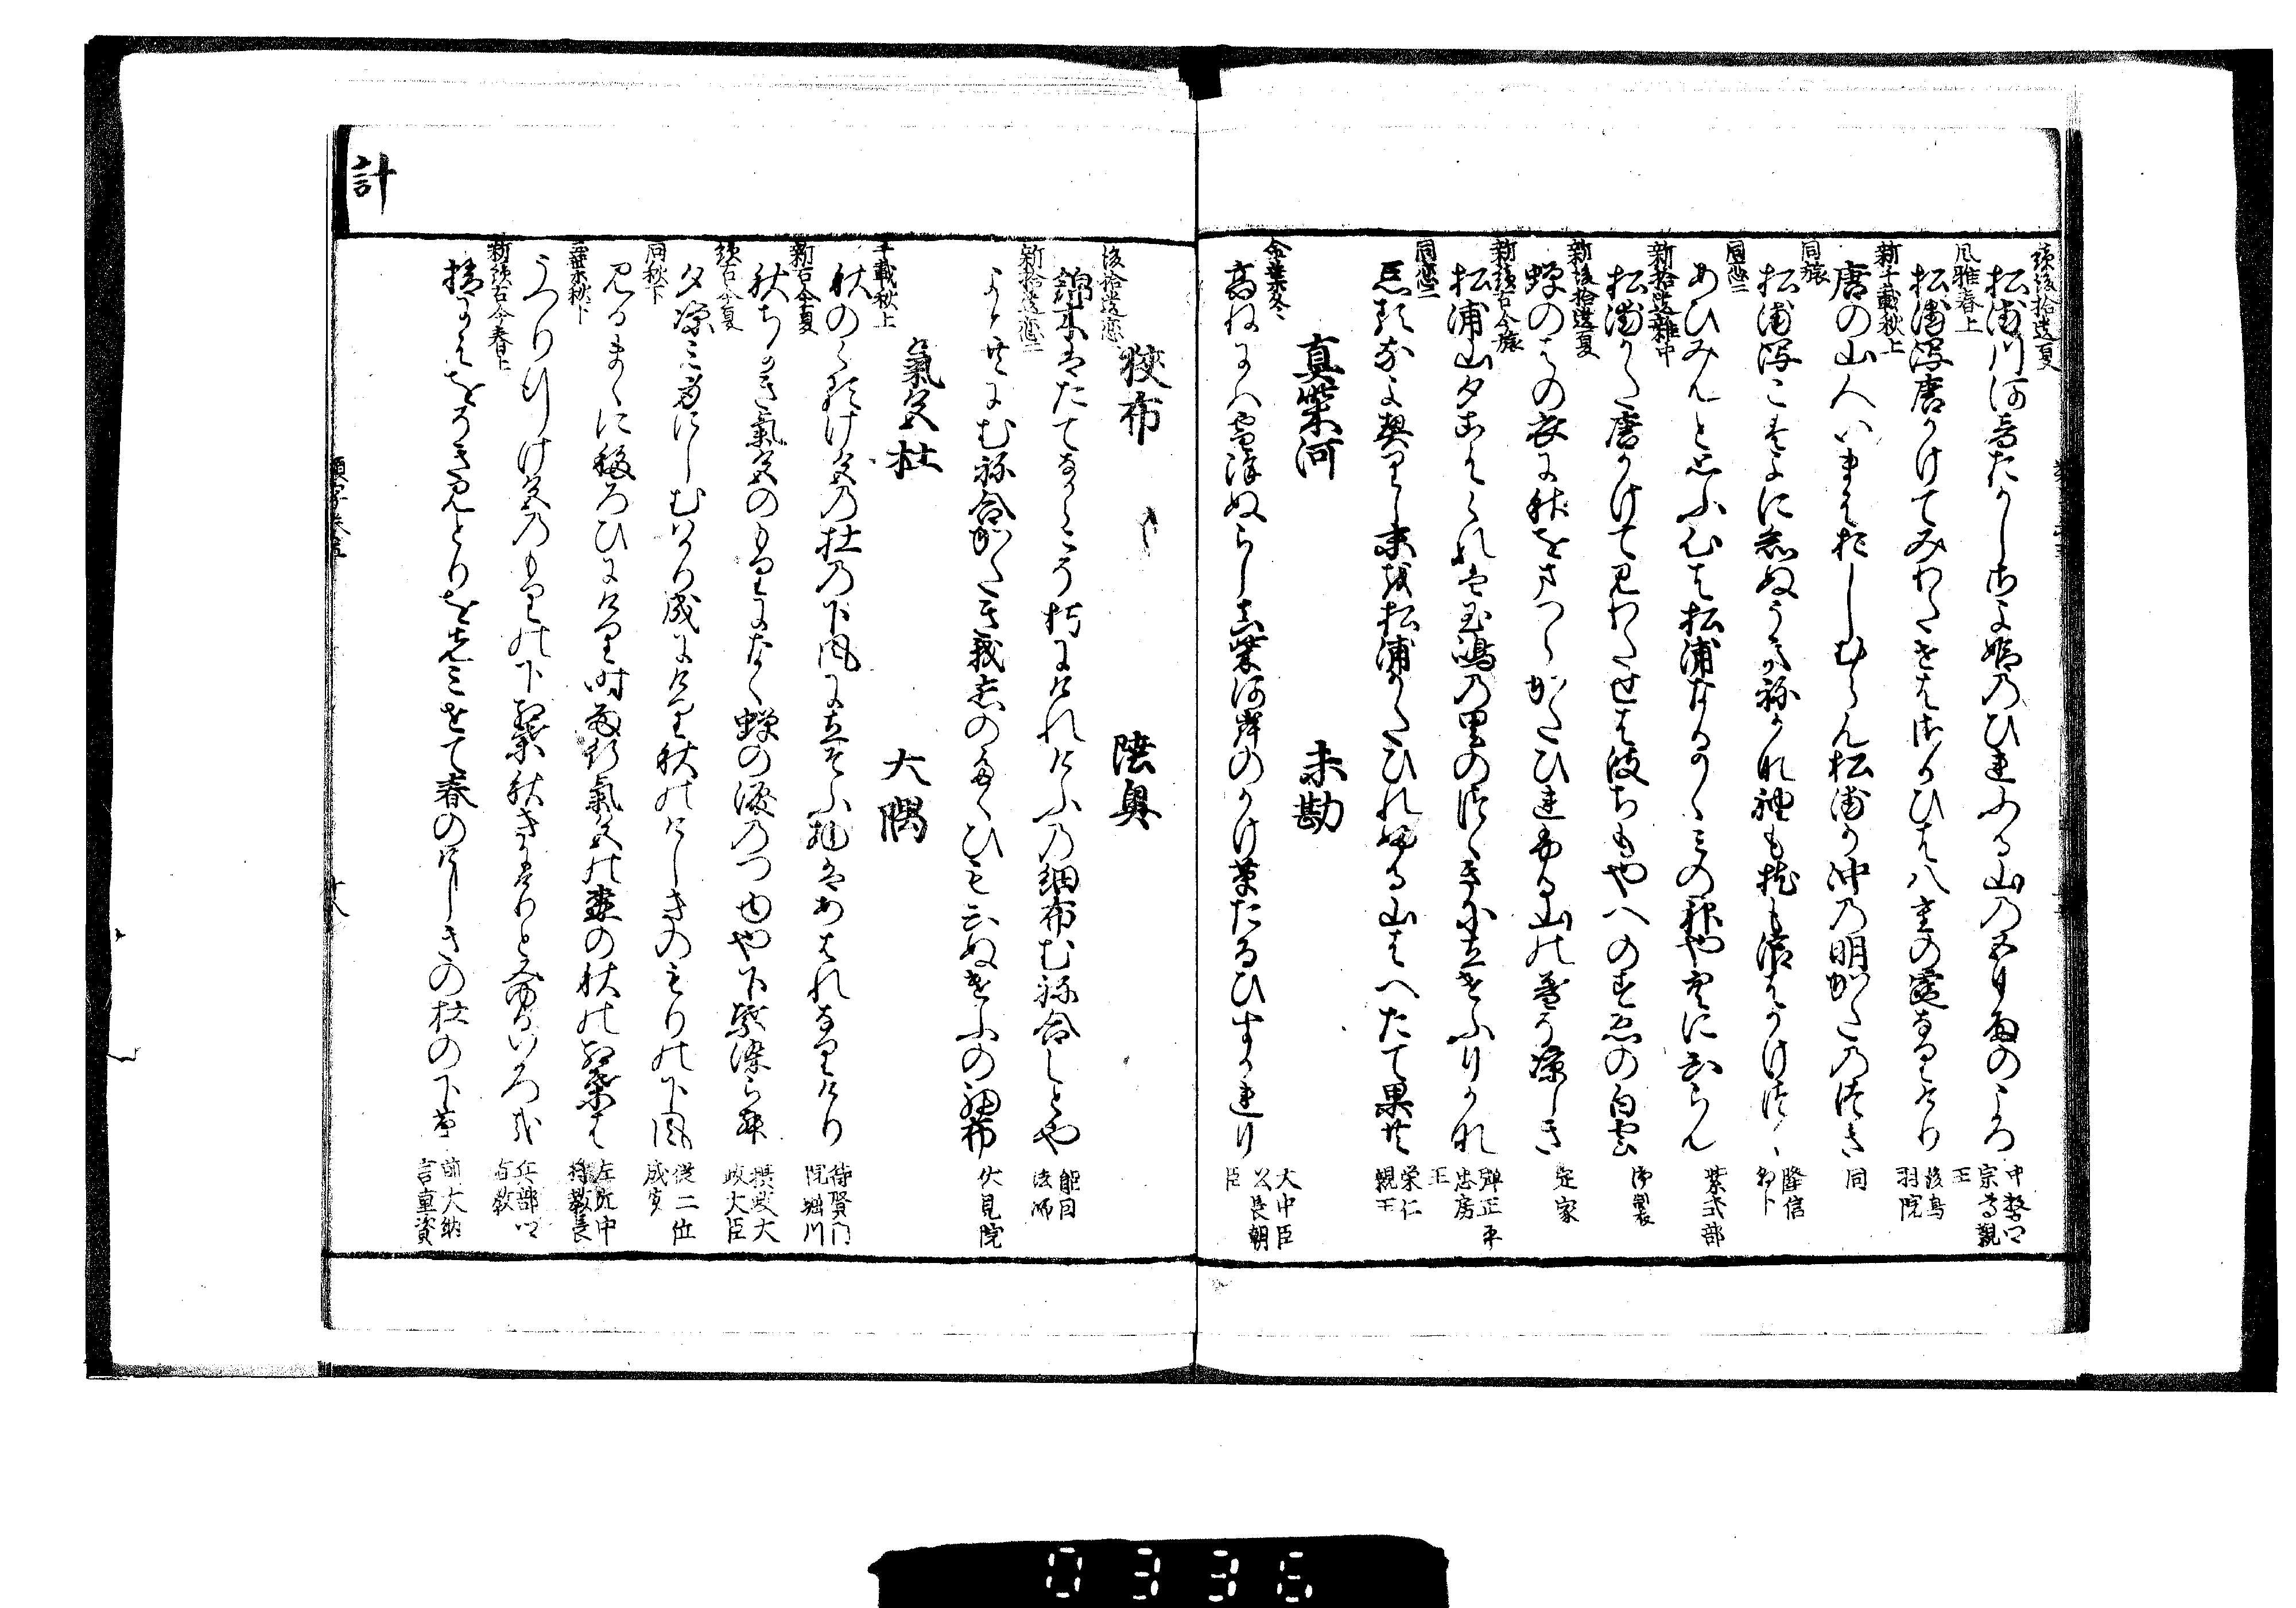 続後拾遺夏
松浦川河音たかしさよ姫のひれふる山の五月雨のころ
中務卿宗尊親王
風雅春上
松浦潟唐かけてみわたせはさかひは八重の霞なりけり
後鳥羽院
新千載秋上
唐の山人いまはおしむらん松浦か沖の明かたの月
同
同旅
隆信朝臣
同恋二
あひみんと思ふ心は松浦なるかゝみの神や空にみらん
紫式部
新拾遺雑中
松浦かた唐かけて見わたせは波ちもやへのすゑの白雲
御製
新後拾遺夏
蝉のはの衣に秋をまつらかたひれふる山の暮そ涼しき
定家
新続古今旅
松浦山夕こえくれは玉嶋の里のつゝきに立けふりかな
弾正尹忠房親王
同恋二
忘るなよ契りし末は松浦かたひれふる山はへたて果共
栄仁親王
真柴河　未勘
金葉冬
高ねには雪降ぬらし真柴河岸のかけ草たるひすかれり
大中臣公長朝臣
狭布　陸奥
後拾遺恋一
錦木はたてなからこそ朽にけれけふの細布むね合しとや
能因法師
新拾遺恋二
よと共にむね合かたき我恋のたくひも云ぬけふの細布
伏見院
氣色杜　大隅
千載秋上
秋のくるけしきの杜の下風に立そふ物はあはれなりけり
待賢門院堀川
新古今夏
秋ちかき氣色のもりになく蝉の涙のつゆや下葉染らん
摂政太政大臣
続古今夏
夕凉み身にしむはかり成にけり秋のけしきのもりの下風
従二位成実
同秋下
見るまゝに移ろひにけり時雨行氣色の森の秋の紅葉は
左近中将教長
玉葉秋下
うつり行けしきのもりの下紅葉秋きにけりとみゆるいろ哉
兵部卿有教
新続古今春上
積りにし雪をうき見とりを先みせて春のけしきの杜の下草
前大納言重資
計
類字巻五